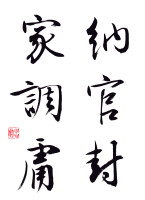 納官封
家調庸